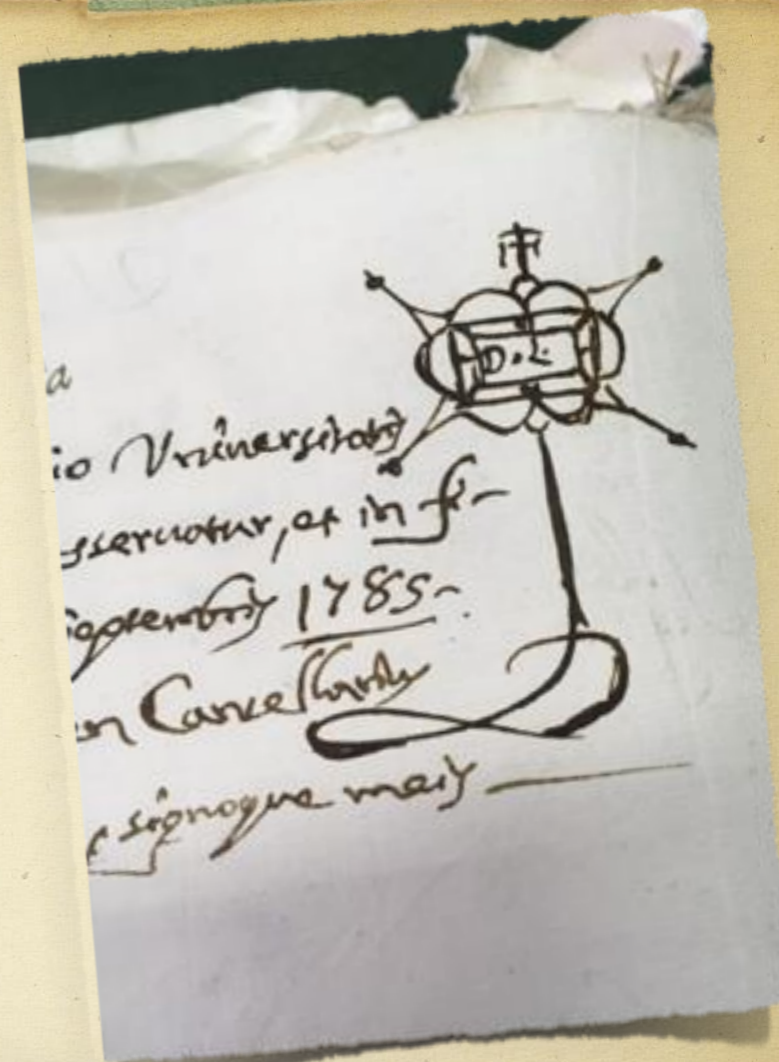 a
io Vniversitatis
sservatur, et in fi-
Septembris 1785-
en Cancellariis
signoque meis
D. L.